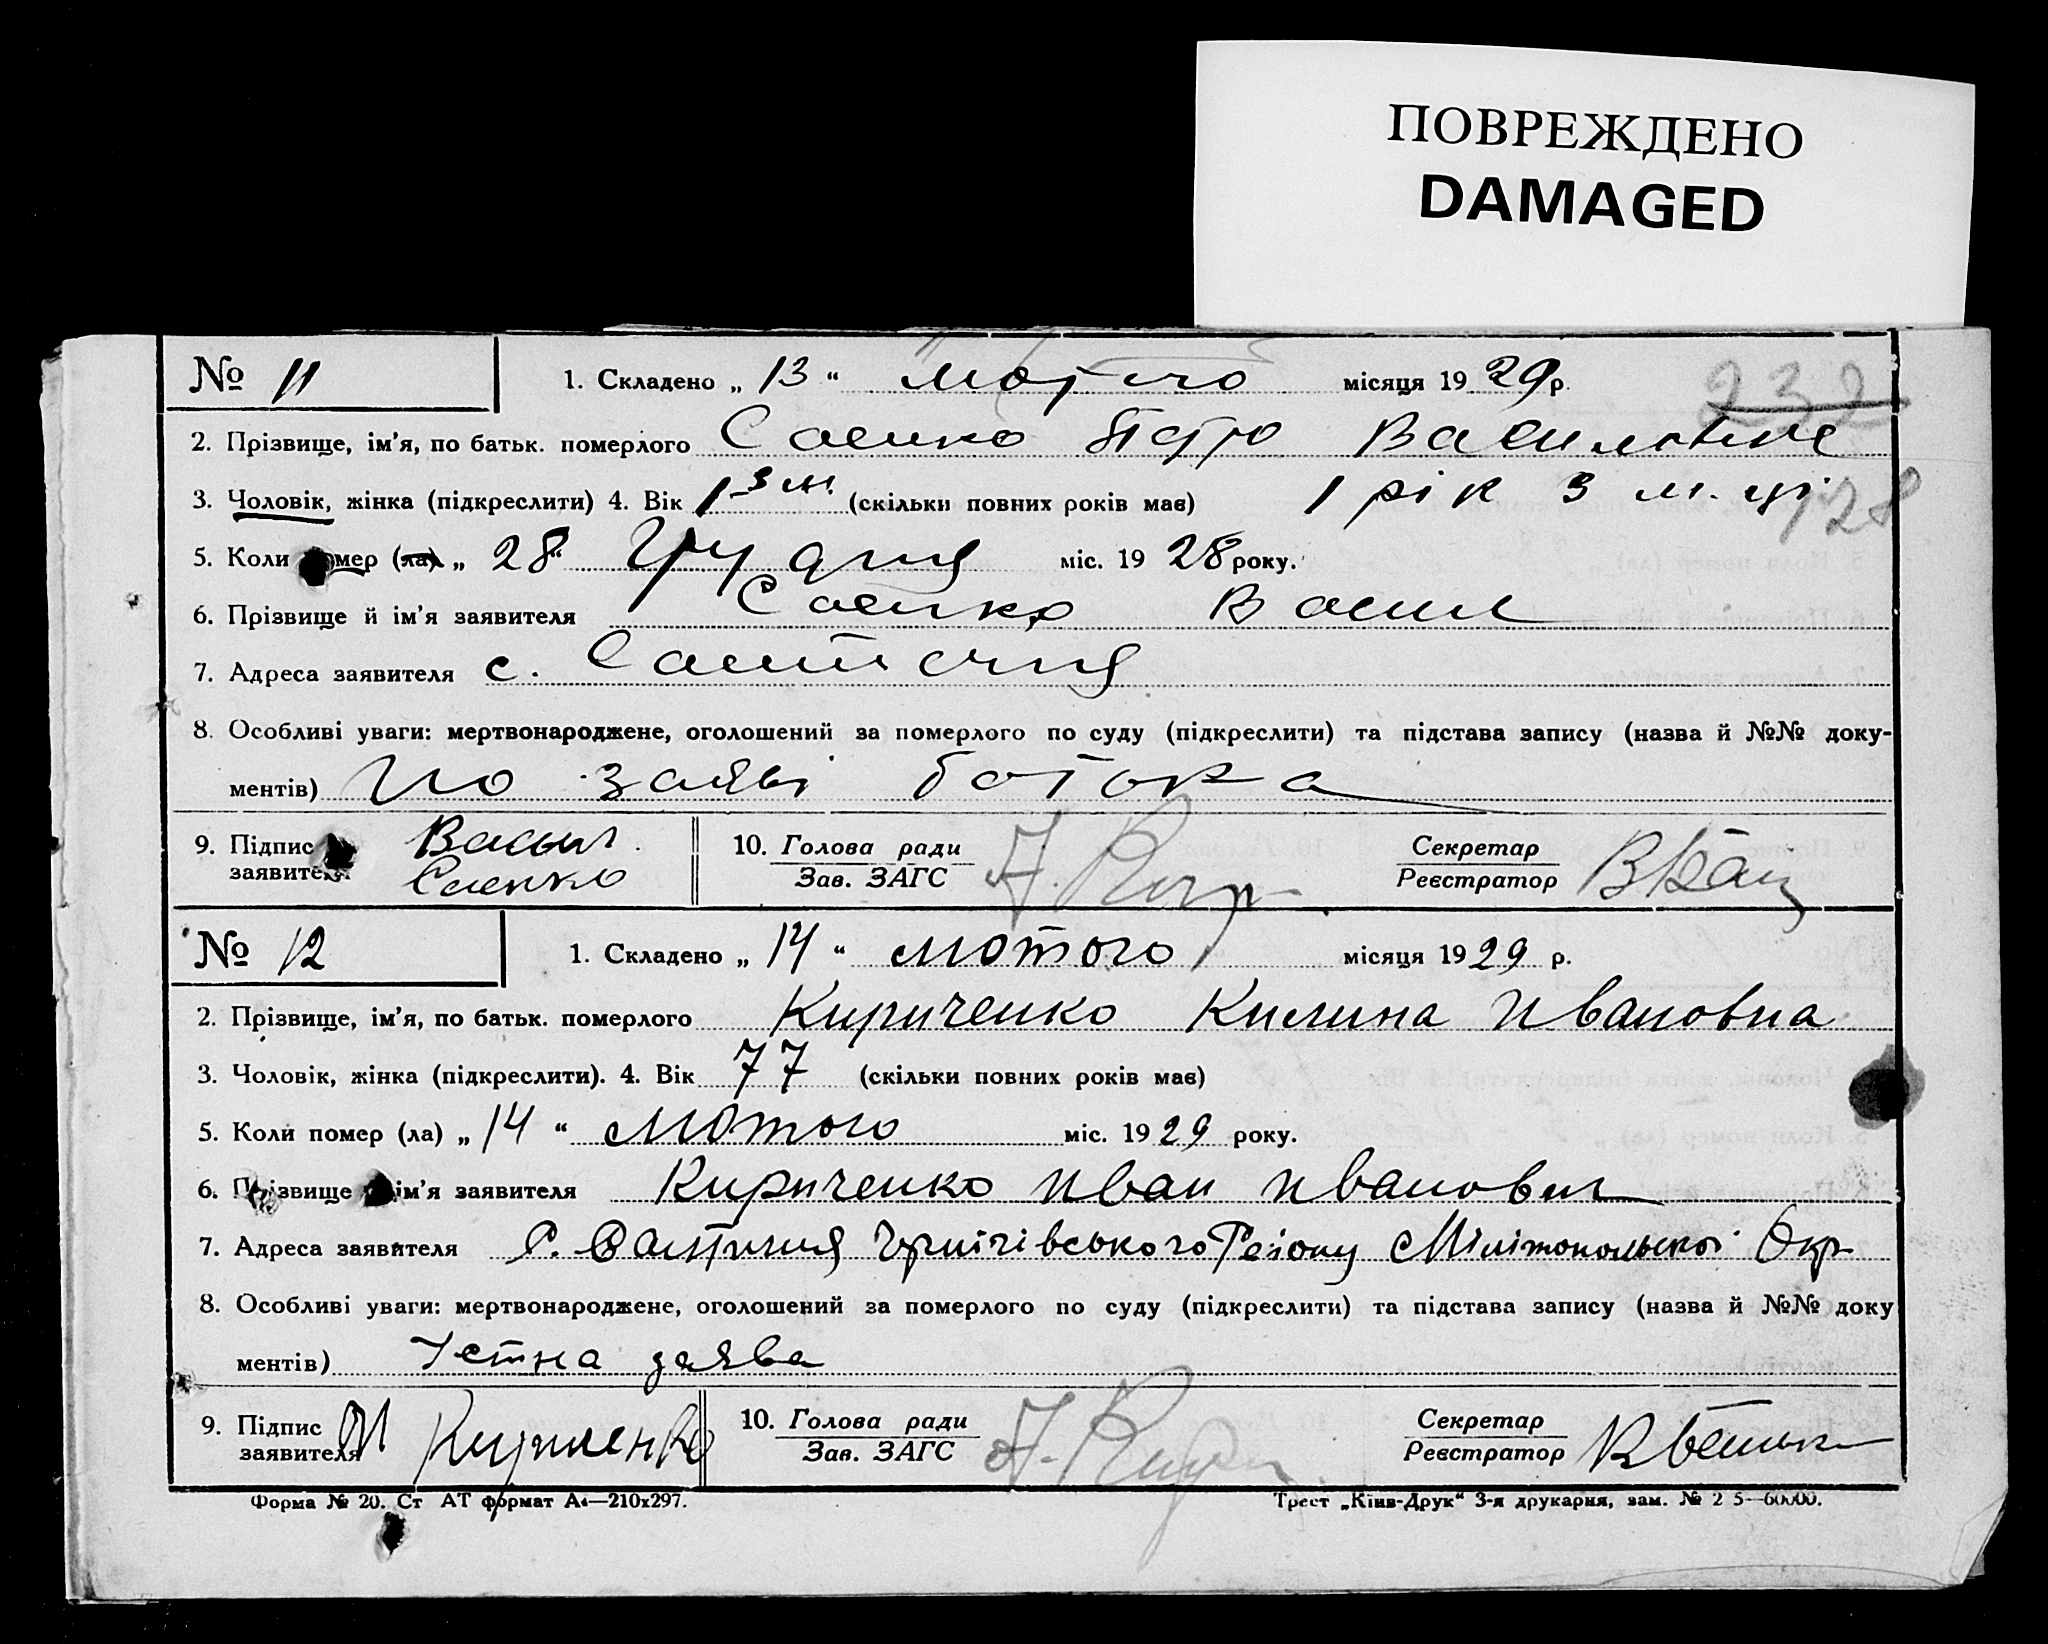 ПОВРЕЖДЕНО
DAMAGED
№ 11 1. Складено „ 13 “ лютого місяця 1929 р.
232
2. Прізвище, ім'я, по батьк. померлого Саенко Петро Васильович
3. Чоловік, жінка (підкреслити) 4. Вік 1-3 м. (скільки повних років має) 1 рік 3 м-ці
128
5. Коли помер (ла) „ 28 “ Грудня міс. 1928 року.
6. Прізвище й ім'я заявителя Саенко Васил
7. Адреса заявителя с.
8. Особливі уваги: мертвонароджене, оголошений за померлого по суду (підкреслити) та підстава запису (назва й №№ доку-
ментів) По заяві батька
9. Підпис заявителя Васыл Саенко 10. Голова ради Зав. ЗАГС Секретар Реєстратор
№ 12 1. Складено „ 14 “ лютого місяця 1929 р.
2. Прізвище, ім'я, по батьк. померлого Кириченко Килина Ивановна
3. Чоловік, жінка (підкреслити). 4. Вік 77 (скільки повних років має)
5. Коли помер (ла) „ 14 “ лютого міс. 1929 року.
6. Прізвище й ім'я заявителя Кириченко Иван Иванович
7. Адреса заявителя с. Району Окр
8. Особливі уваги: мертвонароджене, оголошений за померлого по суду (підкреслити) та підстава запису (назва й №№ доку
ментів) Устна заява
9. Підпис заявителя И Кириченко 10. Голова ради Зав. ЗАГС Секретар Реєстратор
Форма № 20. Ст АТ формат А4—210х297. Трест „Київ-Друк“ 3-я друкарня, зам. №